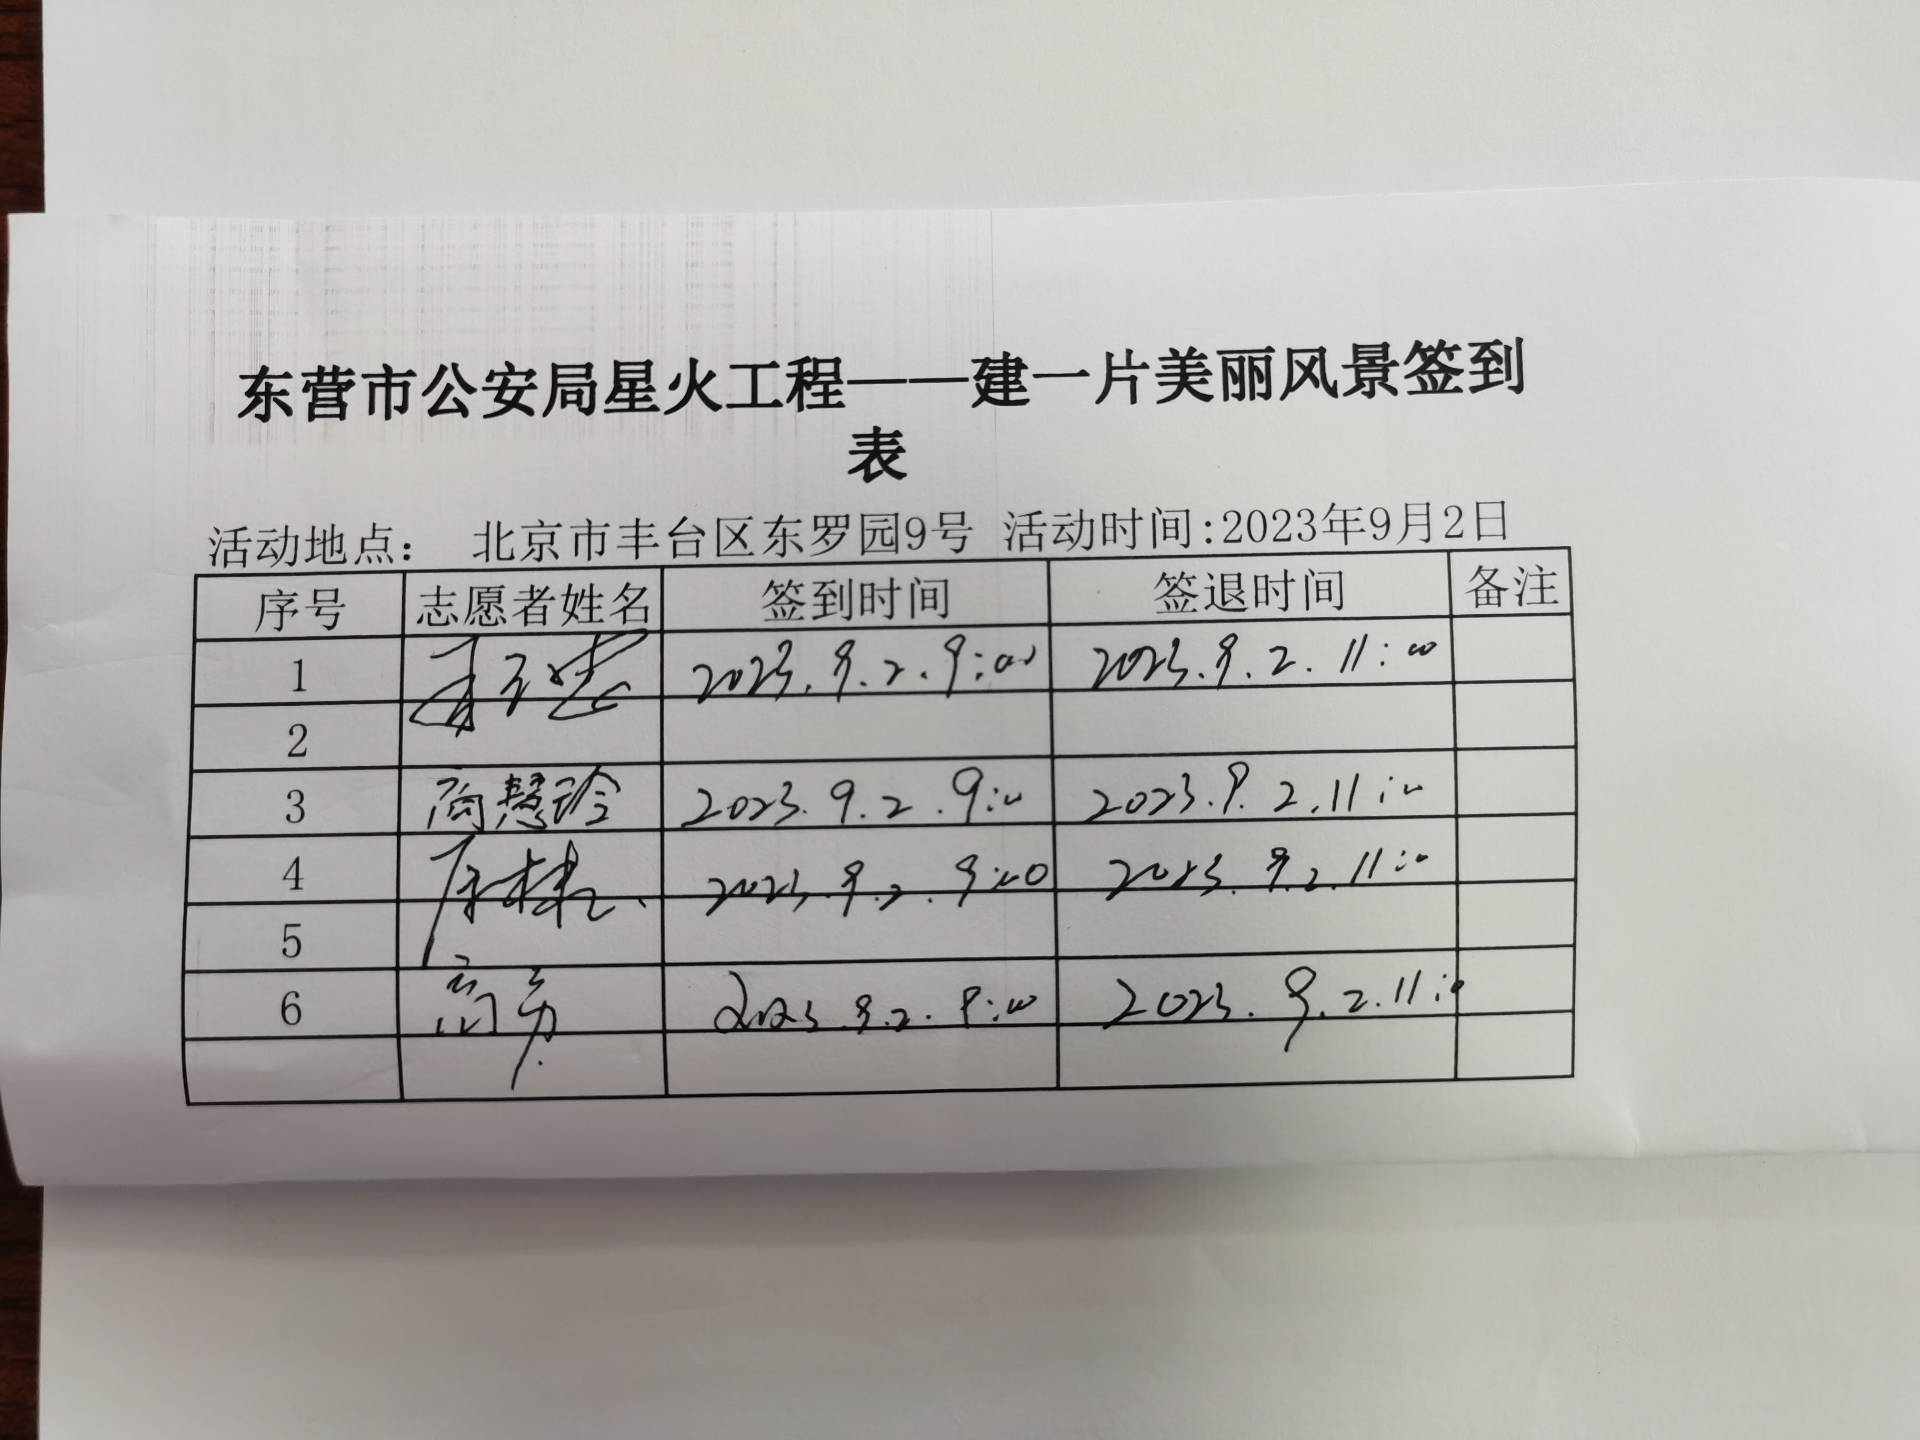 东营市公安局星火工程——建一片美丽风景签到
表
活动地点： 北京市丰台区东罗园9号 活动时间:2023年9月2日
序号 志愿者姓名 签到时间 签退时间 备注
1 2023.9.2.9:00 2023.9.2.11:00
2
3 商慧玲 2023.9.2.9:00 2023.9.2.11:00
4 2023.9.2.9:00 2023.9.2.11:00
5
6 2023.9.2.9:00 2023.9.2.11:00